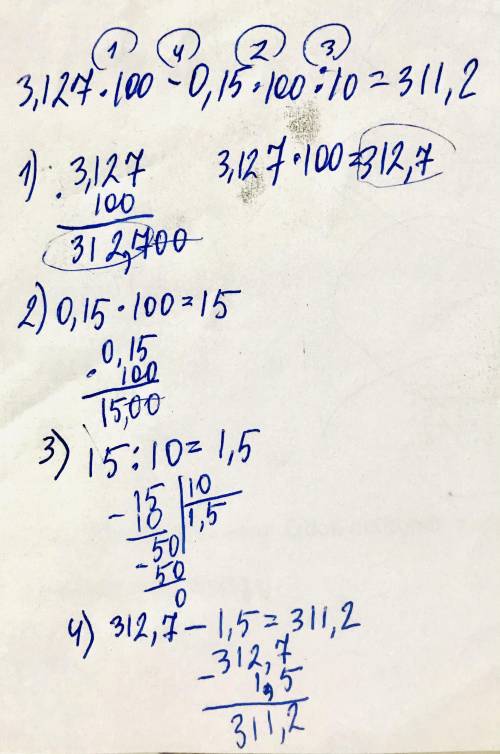 1 4 2 3
3,127·100 - 0,15·100:10=311,2
1) 3,127 3,127·100=312,7
· 100
312,700
2) 0,15·100=15
0,15
· 100
15,00
3) 15:10=1,5
- 15 10
10 1,5
- 50
50
0
4) 312,7 - 1,5=311,2
- 312,7
1,5
311,2